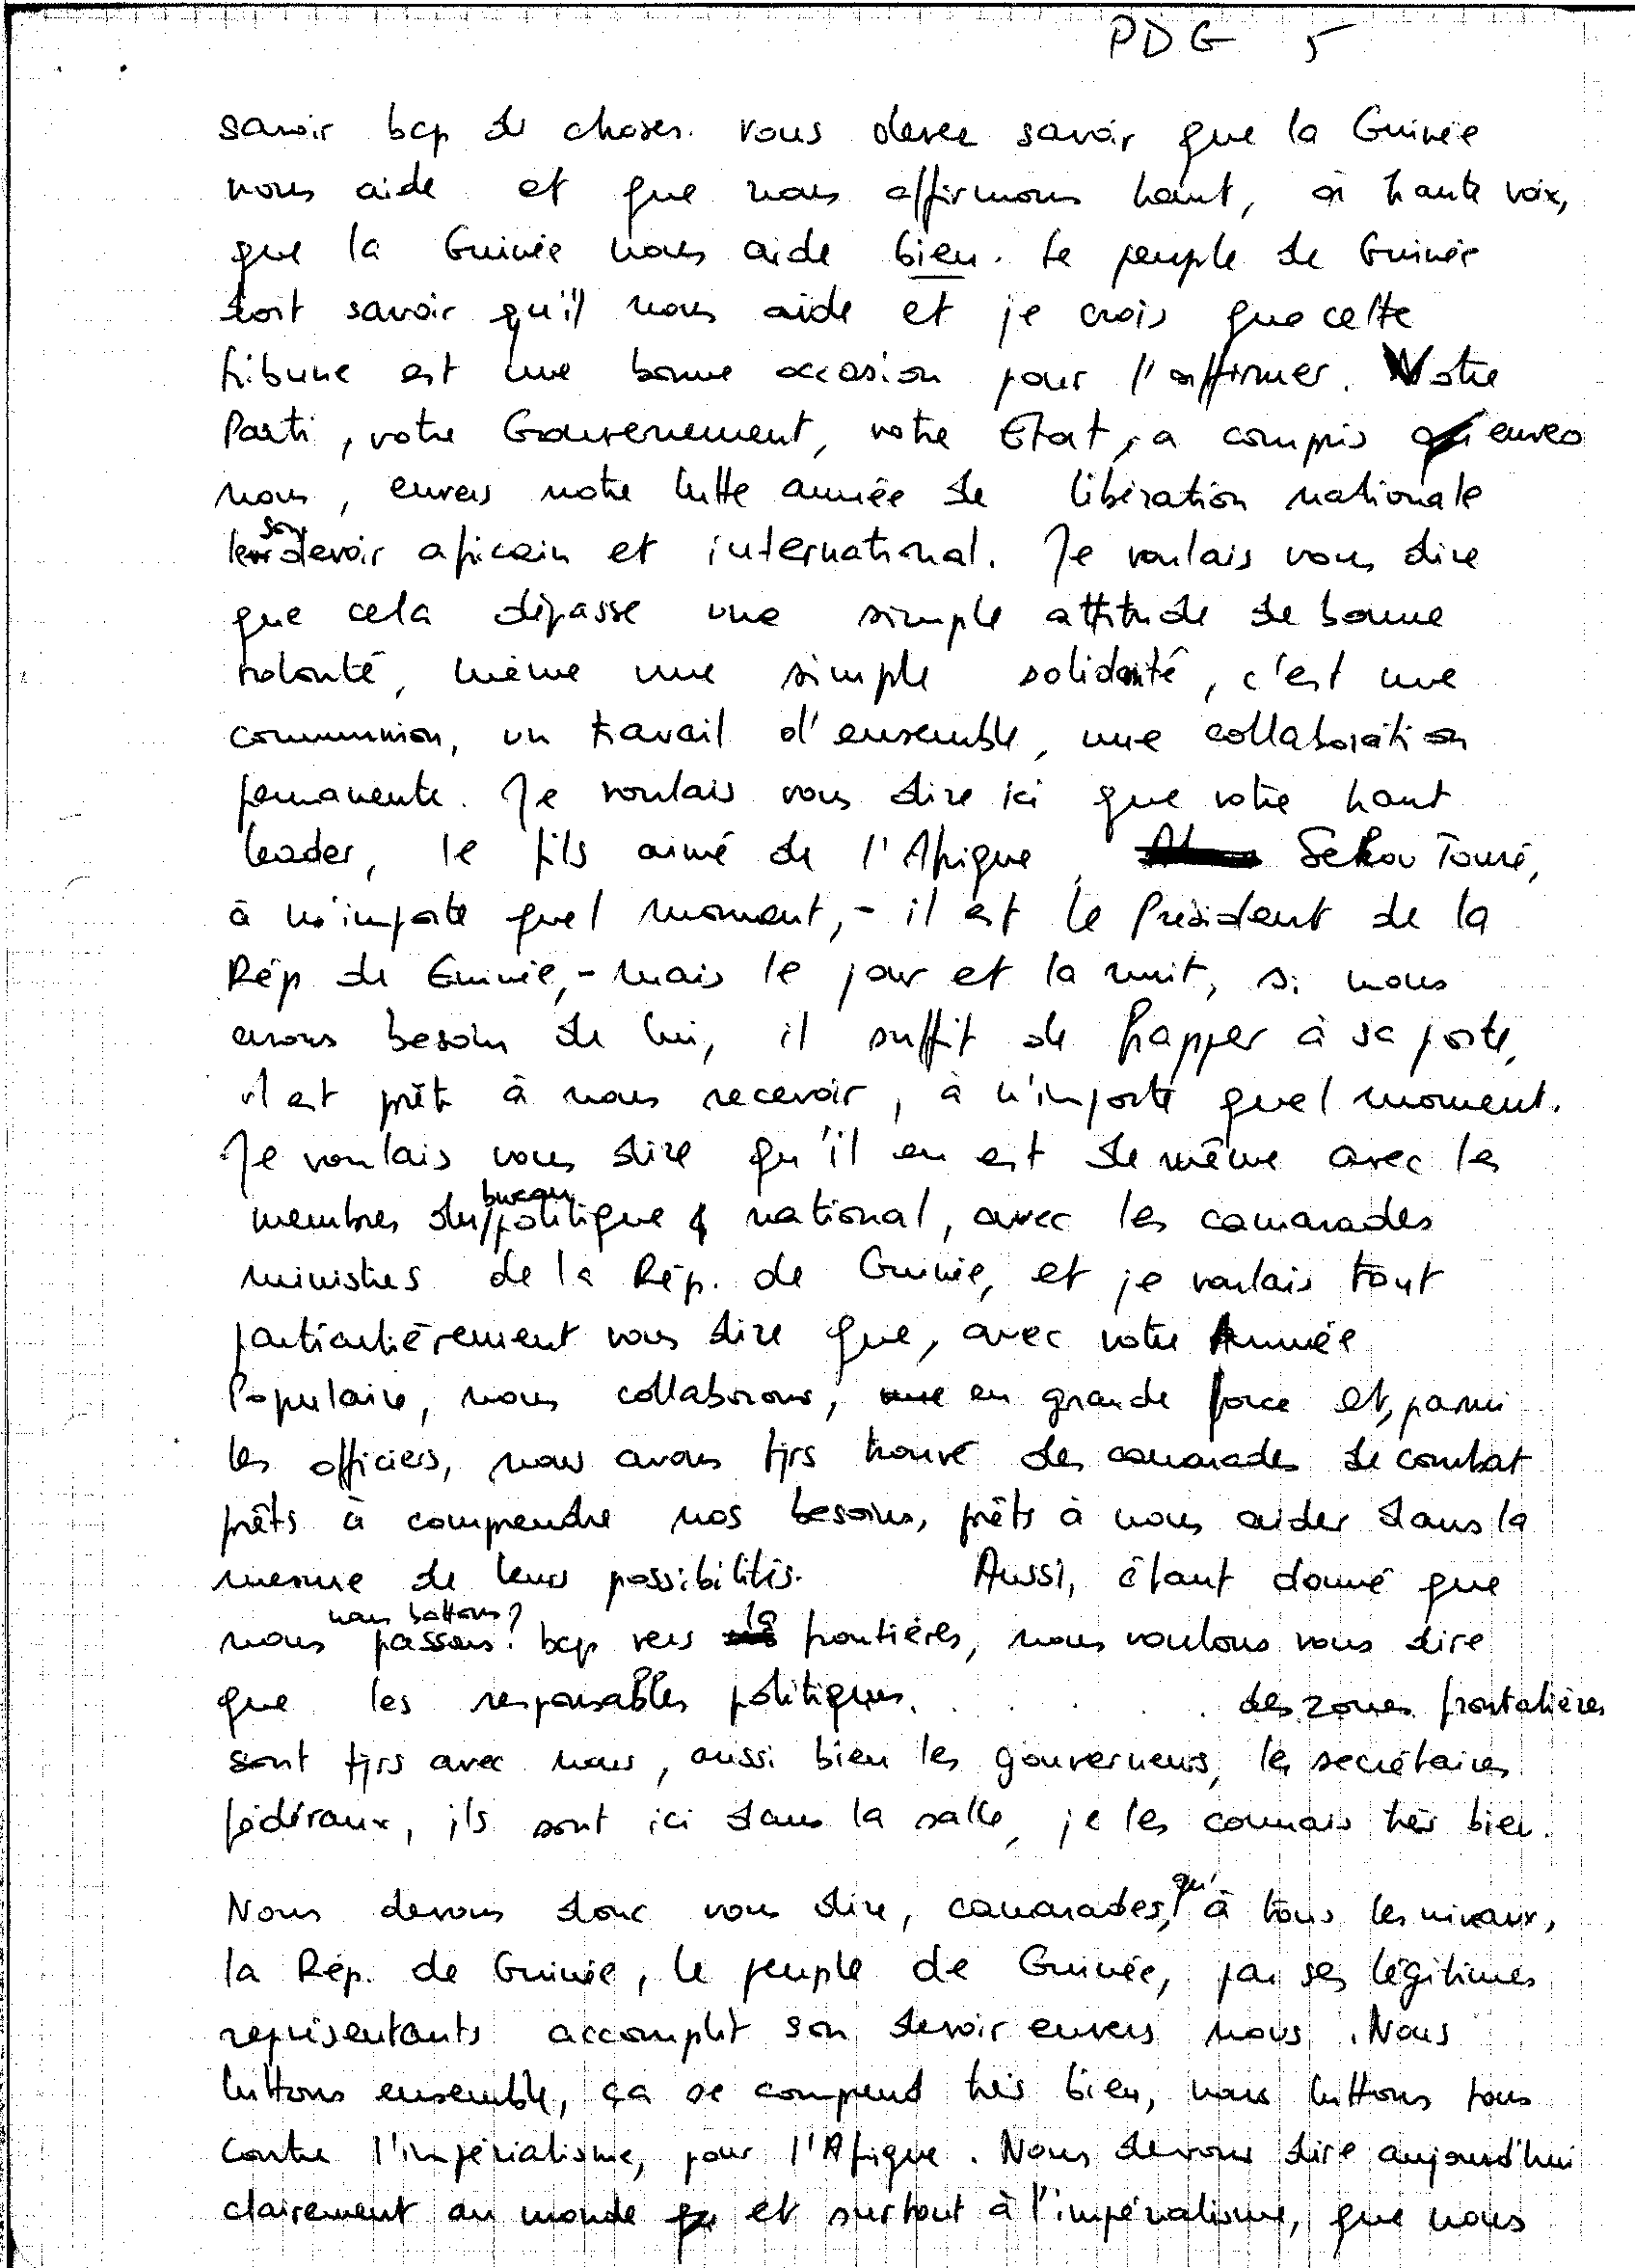 PDG 5
savoir bcp de choses. vous devez savoir que la Guinée
nous aide et que nous affirmons haut, à haute voix,
que la Guinée nous aide bien. Le peuple de Guinée
doit savoir qu'il nous aide et je crois que cette
tribune est une bonne occasion pour l'affirmer. Votre
Parti, votre Gouvernement, votre Etat, a compris envers
nous, envers notre lutte armée de libération nationale
son devoir africain et international. Je voulais vous dire
que cela dépasse une simple attitude de bonne
volonté, même une simple solidarité, c'est une
communion, un travail d'ensemble, une collaboration
permanente. Je voulais vous dire ici que votre haut
leader, le fils aimé de l'Afrique, Sekou Touré,
à n'importe quel moment, - il est le Président de la
Rép de Guinée, - mais le jour et la nuit, si nous
avons besoin de lui, il suffit de frapper à sa porte,
il est prêt à nous recevoir, à n'importe quel moment.
Je voulais vous dire qu'il en est de même avec les
membres du bureau politique national, avec les camarades
ministres de la Rép. de Guinée, et je voulais tout
particulièrement vous dire que, avec votre Armée
Populaire, nous collaborons, en grande force et, parmi
les officiers, nous avons tjrs trouvé des camarades de combat
prêts à comprendre nos besoins, prêts à nous aider dans la
mesure de leurs possibilités. Aussi, étant donné que
nous battons?
nous passons? bcp vers la frontières, nous voulons vous dire
que les responsables politiques. . . . . . des zones frontalières
sont tjrs avec nous, aussi bien les gouverneurs, les secrétaires
fédéraux, ils sont ici dans la salle, je les connais très bien.
Nous devons donc vous dire, camarades, qu'à tous les niveaux,
la Rép. de Guinée, le peuple de Guinée, par ses légitimes
représentants accomplit son devoir envers nous. Nous
luttons ensemble, ça se comprend très bien, nous luttons tous
contre l'impérialisme, pour l'Afrique. Nous devons dire aujourd'hui
clairement au monde et surtout à l'impérialisme, que nous